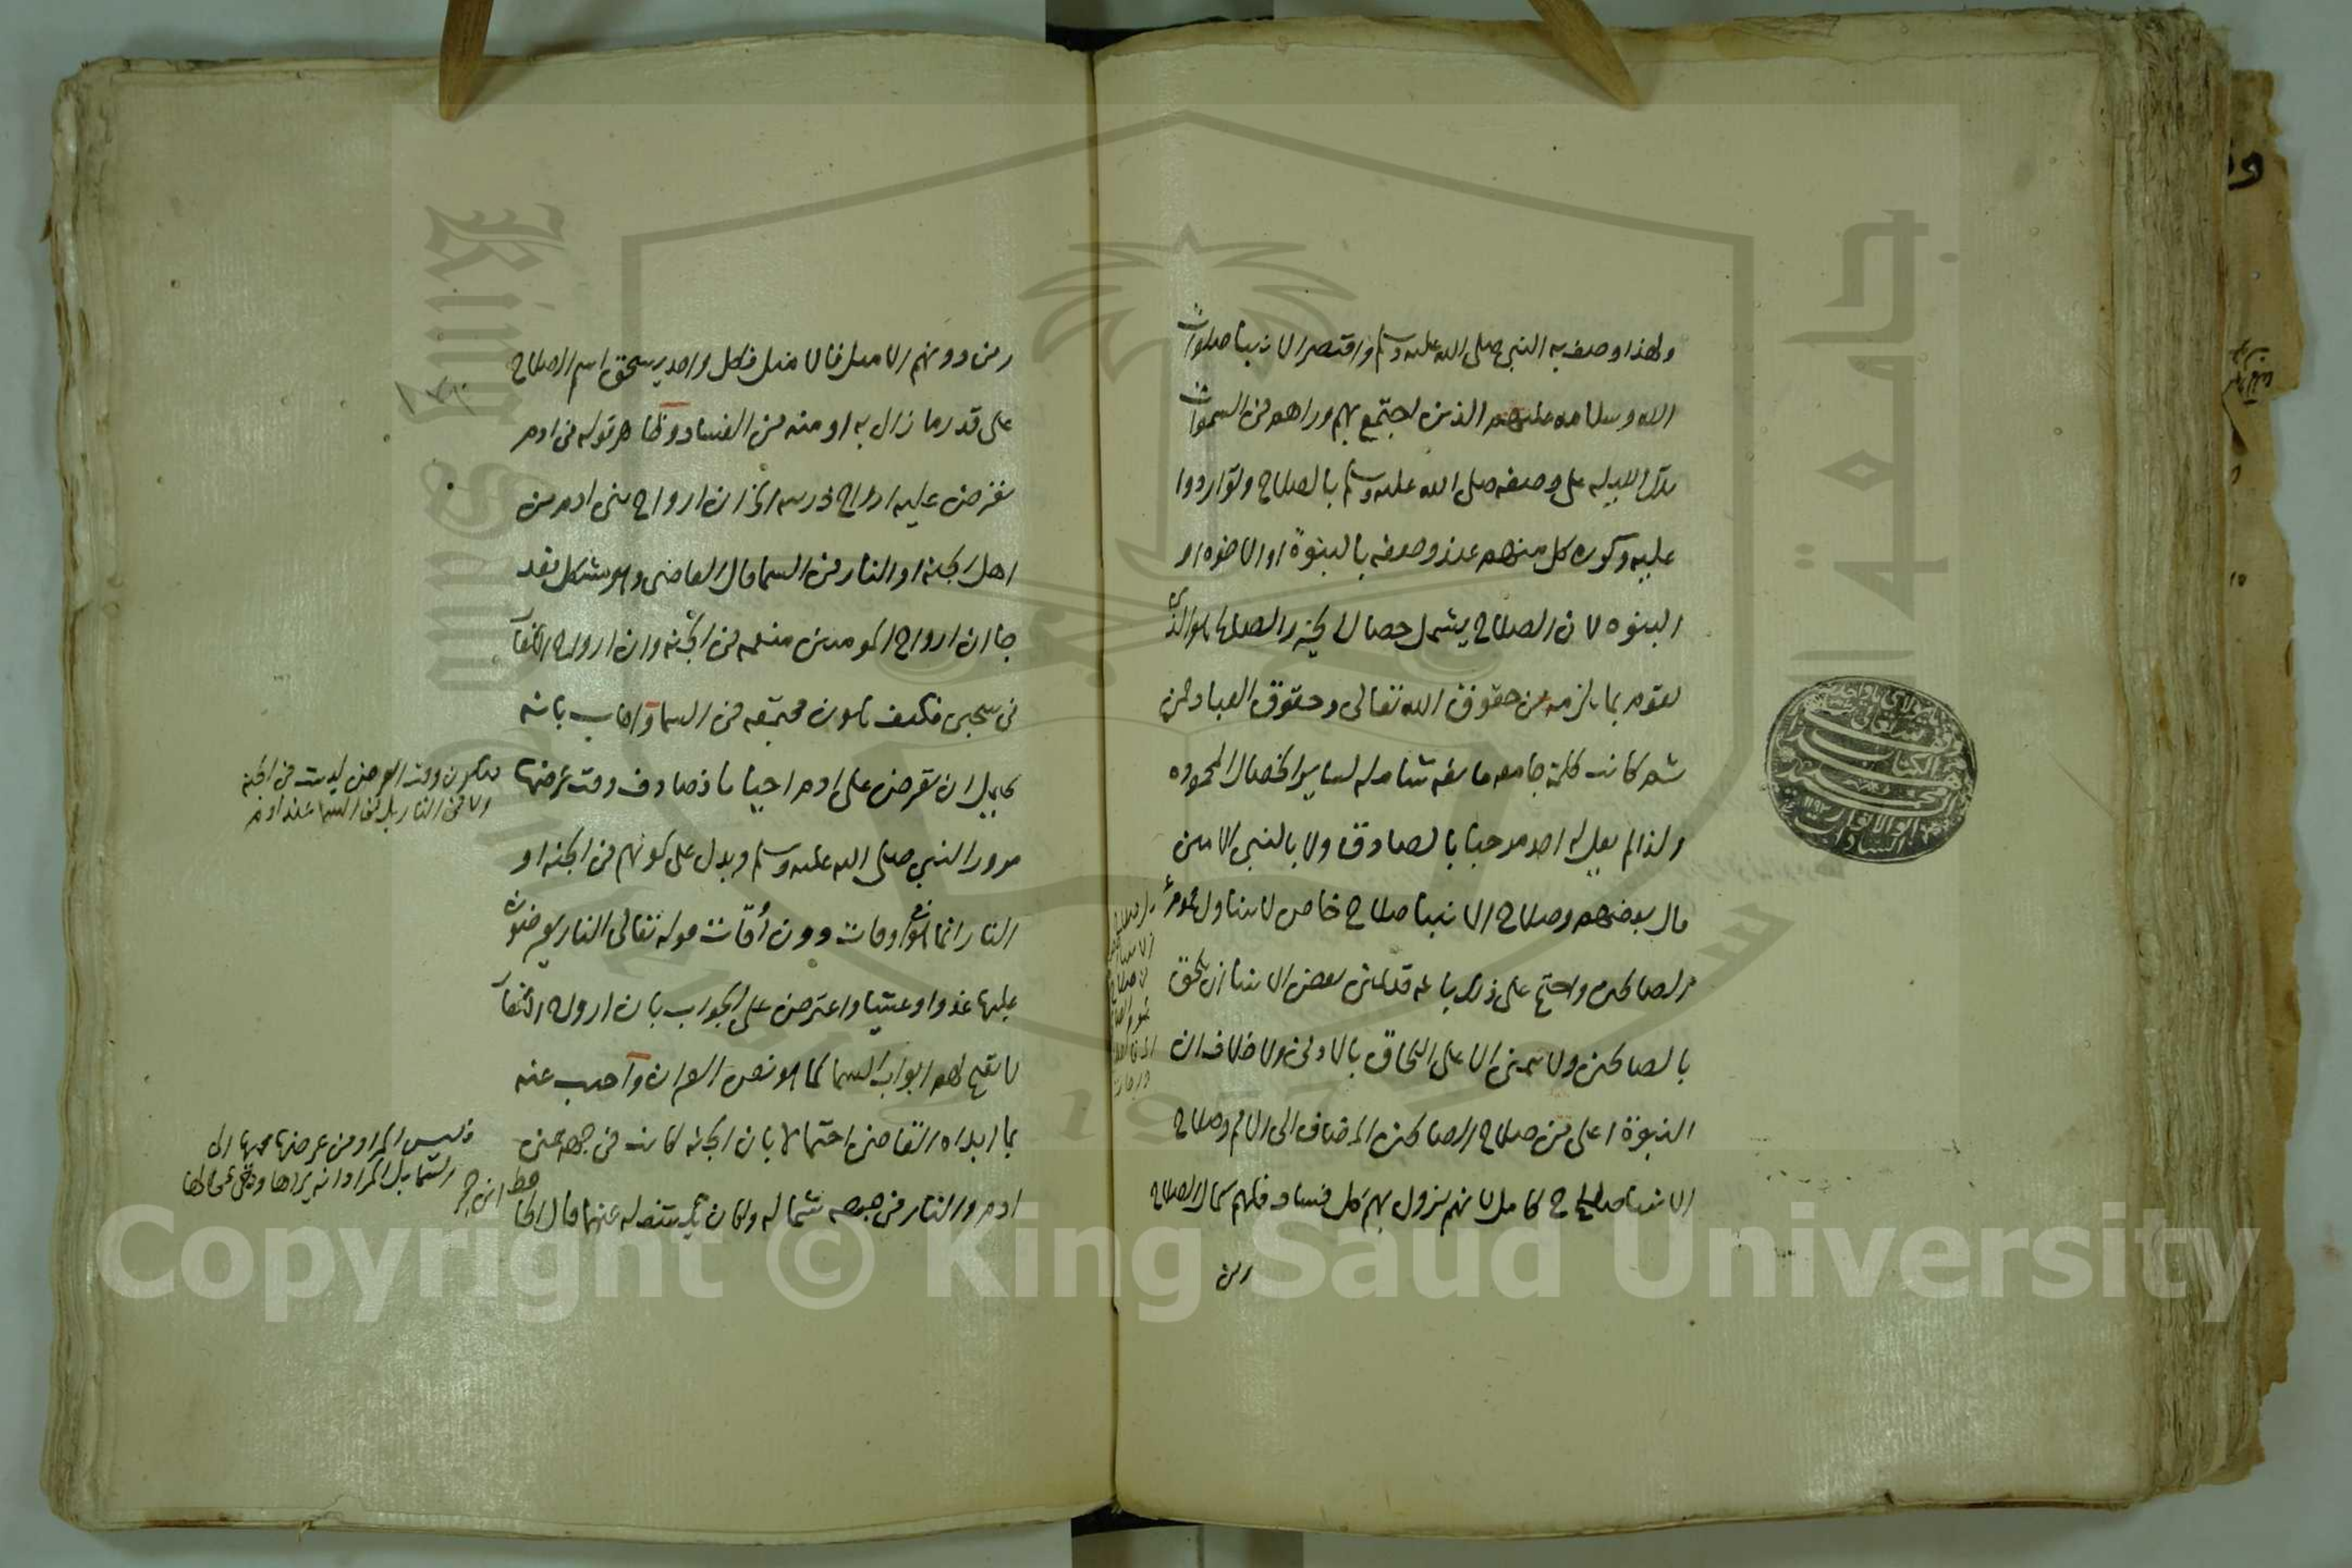 ولهذا وصف به النبي صلى الله عليه وسلم واقتصر الانبيا صلوات
الله وسلامه عليهم الذين اجتمع بهم وراهم في السموات
تلك الليله على وصفه صلى الله عليه وسلم بالصلاح وتواردوا
عليه وكرره كل منهم عند وصفه بالبنوة او الاخوه او
البنوه لان الصلاح يشمل خصال الخير والصالح هو الذي
يقوم بما يلزمه من حقوق الله تعالى وحقوق العباد فمن
ثم كانت كلمة جامعه مانعه شامله لساير الخصال المحموده
ولذا لم يقل له احد مرحبا بالصادق ولا بالنبي الامين
قال بعضهم وصلاح الانبيا صلاح خاص لا يتناول عموم
الصالحين واحتج على ذلك بانه قد تمنى بعض الانبيا ان يلحق
بالصالحين ولا يتمنى الاعلى اللحاق بالادنى ولا خلاف ان
النبوة اعلى من صلاح الصالحين المضاف الى الامم وصلاح
الانبيا صلاح كامل لانهم يزول بهم كل فساد فلهم كمال الصلاح
ومن
ومن دونهم الامثل فالامثل فكل واحد يستحق اسم الصلاح
على قدر ما زال به او منه من الفساد وظاهر قوله في ادم
تعرض عليه ارواح ذريته الخ ان ارواح بني ادم من
اهل الجنه او النار في السما قال القاضي وهو مشكل فقد
جا ان ارواح المومنين منعمه في الجنه وان ارواح الكفار
في سجين فكيف تكون مجتمعه في السما واجاب بانه
يحتمل ان تعرض على ادم احيانا فصادف وقت عرضها
مرور النبي صلى الله عليه وسلم ويدل على كونهم في الجنه او
النار انما هو في اوقات دون اوقات قوله تعالى النار يعرضون
عليها غدوا وعشيا واعترض على الجواب بان ارواح الكفار
لا تفتح لهم ابواب السما كما هو نص القران واجيب عنه
بما ابداه القاضي احتمالا بان الجنه كانت في جهه يمين
ادم والنار في جهه شماله وكان يكشف له عنهما قال الحا
فتكون وقت العرض ليست في الجنه
ولا في النار بل في السما عند ادم
فليس المراد من عرضها مجيها الى
السما بل المراد انه يراها وهي في محالها
فظ ابن حجر
King Saud University
جامعة الملك سعود
1957
Copyright © King Saud University